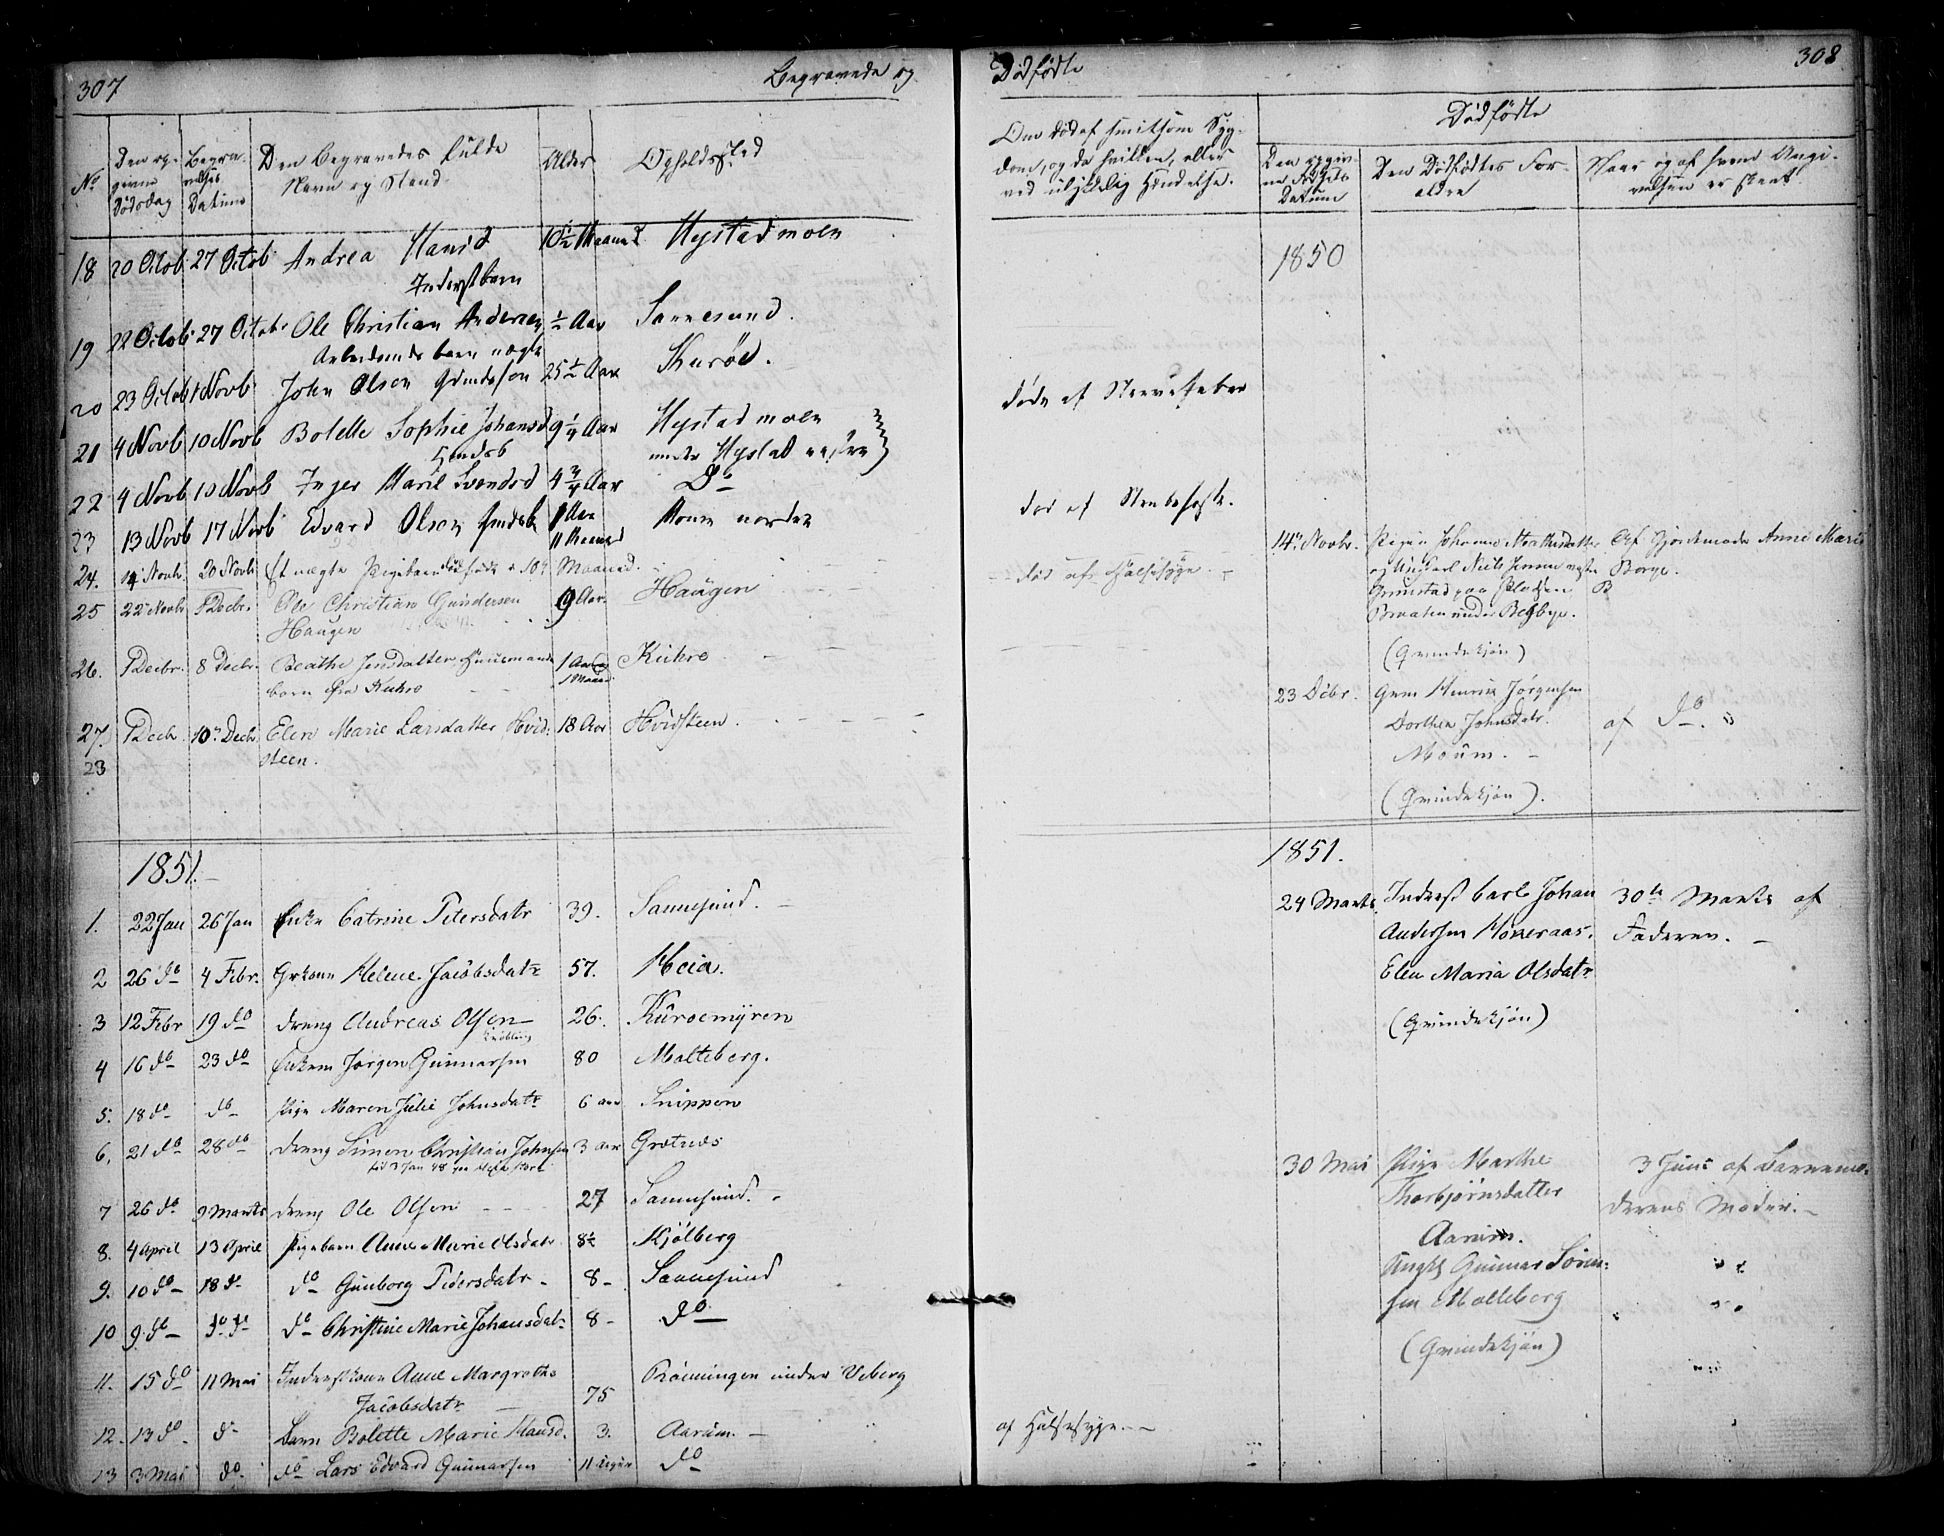 307
Begravede og
No
Den op-
givne
Dødsdag
Begra-
velses
Datum
Den Begravedes fulde
Navn og Stand.
Alder
Opholdssted
18 20 Octob 27 Octob. Andrea Hansd 10½ Maaned Hystadmoen
Inderstbarn
19 22 Octob. 27 Octob. Ole Christian Andersen ½ Aar Sannesund.
Arbeidsmds barn uægte
20 23 Octob 1 Novb John Olsen Gmdssøn 25½ Aar Kurød.
21 4 Novb 10 Novb Bolette Sophie Johansd 9¼ Aar Hystadmoen
under Hystad nedre
22 4 Novb 10 Novb Inger Marie Svendsd 4¾ Aar Do
23 13 Novb 17 Novb Edvard Olsen 1 Aar Moum nordre
11 Maaned
24. 14 Novbr. 20 Novb. Et uægte Pigebarn dødfødt Maaned.
25 22 Novbr. 1 Decbr. Ole Christian Gundersen 9 Aar. Haugen
Haugen
26. 1 Decbr. 8 Decbr. Beathe Jensdatter Huusmands 1 Aar og Kuhre
barn fra Kuhre 1 Maaned
27. 1 Decbr. 10 Decbr. Elen Marie Larsdatter Hvid- 18 Aar Hvidsteen.
steen.
23
1851.
1. 22 Jan 26 Jan Enke Catrine Petersdatr 39. Sannesund.
2 26 do 4 Febr. Gkone Helene Jacobsdatr 57. Heia.
3 12 Febr 19 do dreng Andreas Olsen 26. Kuroemyren
Krøbling
4 16 do 23 do Enkem Jørgen Gunnarsen 80 Molteberg.
5. 18 do do Pige Maren Julie Johnsdatr 6 aar Snippen
6. 21 do 28 do dreng Simon Christian Johnsen 3 aar Grotnes
7 26 do 9 Marts dreng Ole Olsen 27 Sannesund.
8. 4 April 13 April Pigebarn Anne Marie Olsdatr 8½ Kjølberg
9. 10 do 18 do do Gunborg Pedersdatr 8 Sannesund
10 9. do do do do Christine Marie Johansdatr 8 do
11. 15 do 11 Mai Inderstkone Anne Margrethe 75 Rømningen under Veberg
Jacobsdatr
12. 13 do do Barn Bolette Marie Hansd. 3. Aarum.
13 3 Mai do do Lars Edvard Gunnarsen 11 Uger do
308
Dødfødte
Om død af smitsom Syg-
dom, og da hvilken, eller
ved ulykkelig Hændelse.
Dødfødte
Den opgiv-
ne Fødsels
Datum
Den Dødfødtes For-
ældre
Naar og af hvem Angi-
velsen er skeet.
1850
døde af Nervefeber
død af Strubehoste.
død af Halssyge.
14. Novbr. Pigen Johanne Marthesdatter Af Gjordemoder Anne Marie
og Ungkarl Niels Jensen Borge.
Grimstad, paa Pladsen
Braaten under Begbye.
(Qvindekjøn)
23 Dcbr. Gmm Henrik Jørgensen
Dorthea Johnsdatr. af do
Moum.
(Qvindekjøn).
1851.
24 Marts Inderst Carl Johan 30te Marts af
Andersen Hôneraas. Faderen.
Elen Maria Olsdatr
(Qvindekjøn)
30 Mai Pige Marthe 3 Juni af Barnemo-
Thorbjørnsdatter derens Moder.
Aarum.
Ungk Gunnar Søren-
sen Molteberg
(Qvindekjøn)
af Halssyge.